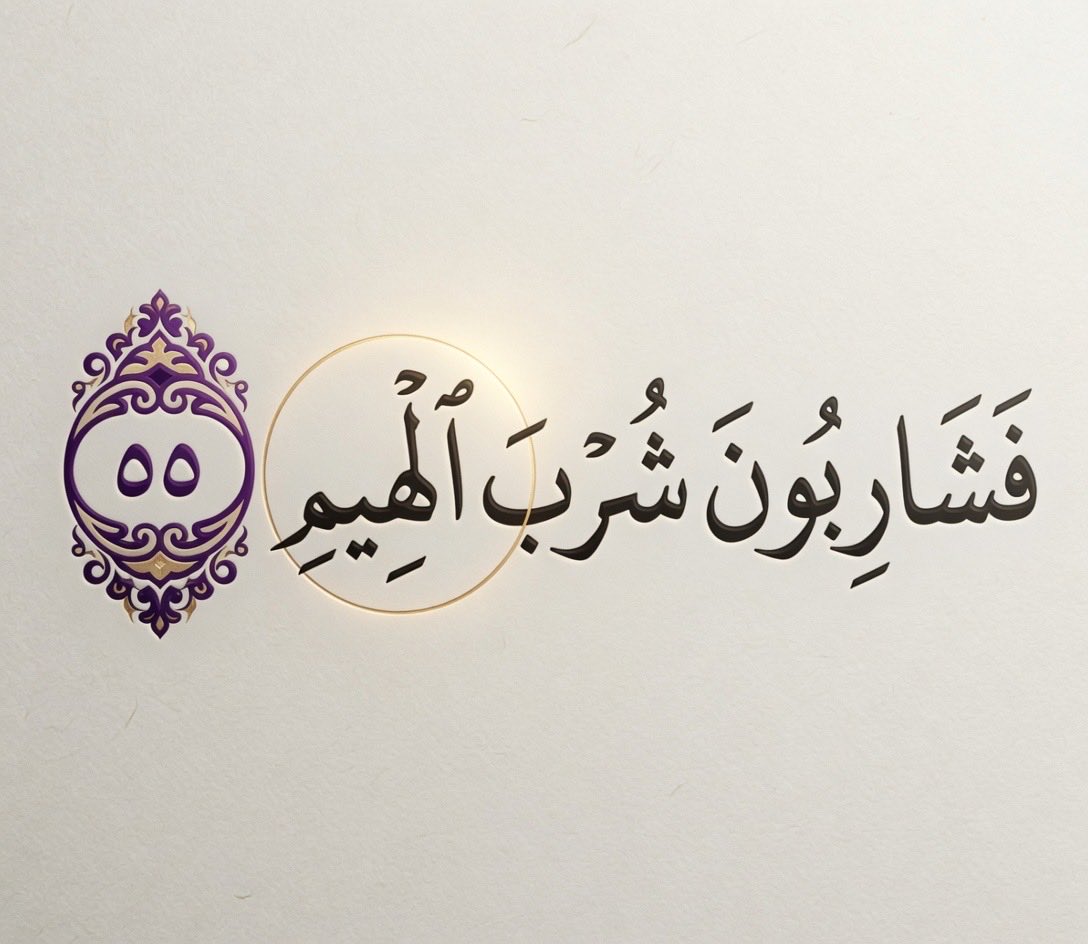 فَشَارِبُونَ شُرْبَ ٱلْهِيمِ ٥٥